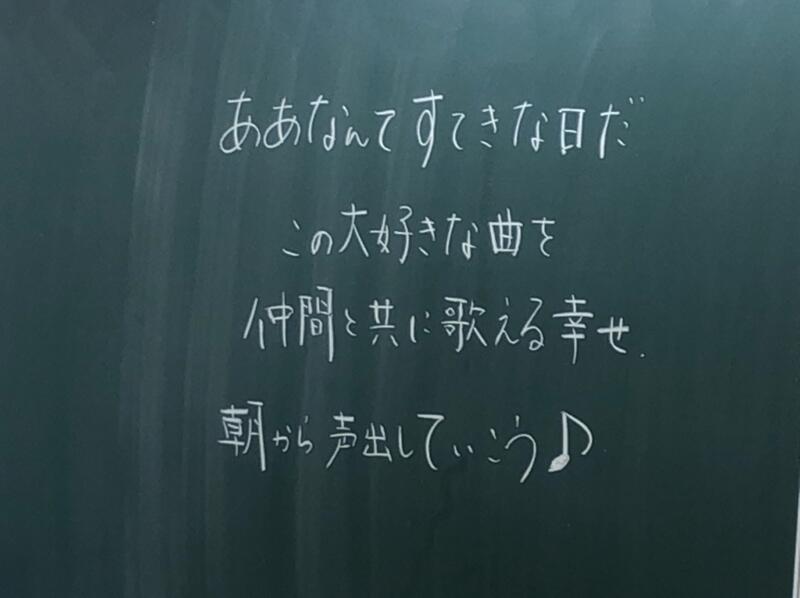 ああなんてすてきな日だ
この大好きな曲を
仲間と共に歌える幸せ.
朝から声出していこう♪